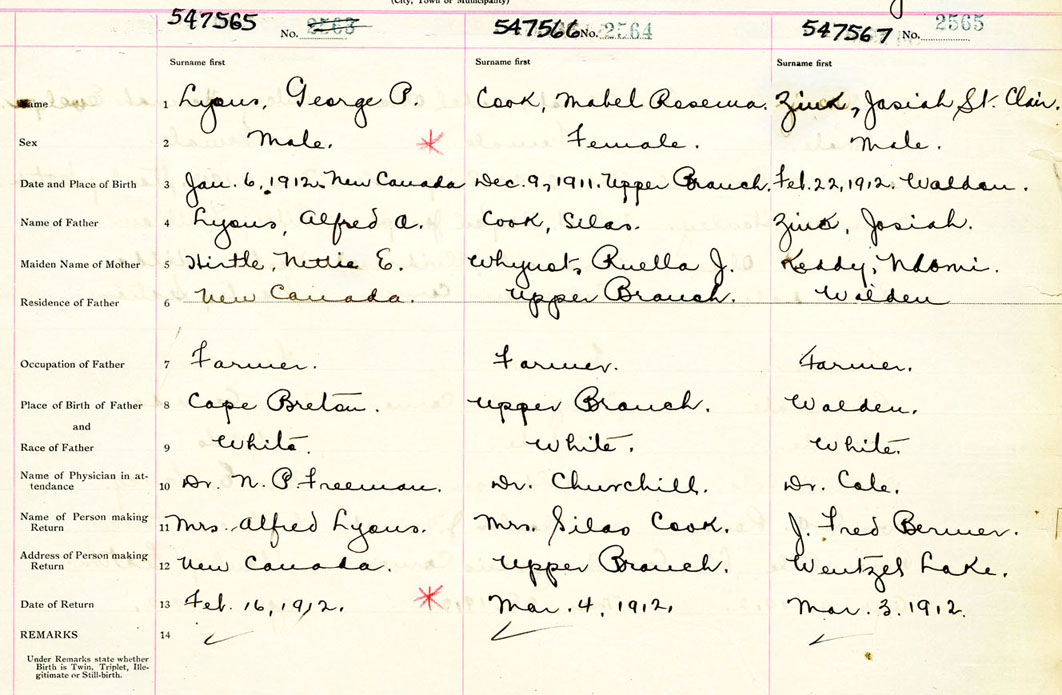 (City, Town or Municipality)
547565 No. 2563 547566 No. 2564 547567 No. 2565
Surname first Surname first Surname first
Name 1 Lyons, George P. Cook, Mabel Rosema. Zink, Josiah St. Clair.
Sex 2 Male. Female. Male.
Date and Place of Birth 3 Jan. 6, 1912. New Canada Dec. 9, 1911. Upper Branch. Feb. 22, 1912. Walden.
Name of Father 4 Lyons, Alfred A. Cook, Silas. Zink, Josiah.
Maiden Name of Mother 5 Hirtle, Nettie E. Whynot, Ruella J. Keddy, Naomi.
Residence of Father 6 New Canada. Upper Branch. Walden
Occupation of Father 7 Farmer. Farmer. Farmer.
Place of Birth of Father 8 Cape Breton. Upper Branch. Walden.
and
Race of Father 9 White. White. White.
Name of Physician in at-
tendance 10 Dr. N. P. Freeman. Dr. Churchill. Dr. Cole.
Name of Person making
Return 11 Mrs. Alfred Lyons. Mrs. Silas Cook. J. Fred
Address of Person making
Return 12 New Canada. Upper Branch. Wentzel Lake.
Date of Return 13 Feb. 16, 1912. Mar. 4, 1912. Mar. 3. 1912.
REMARKS 14
Under Remarks state whether
Birth is Twin, Triplet, Ille-
gitimate or Still-birth.